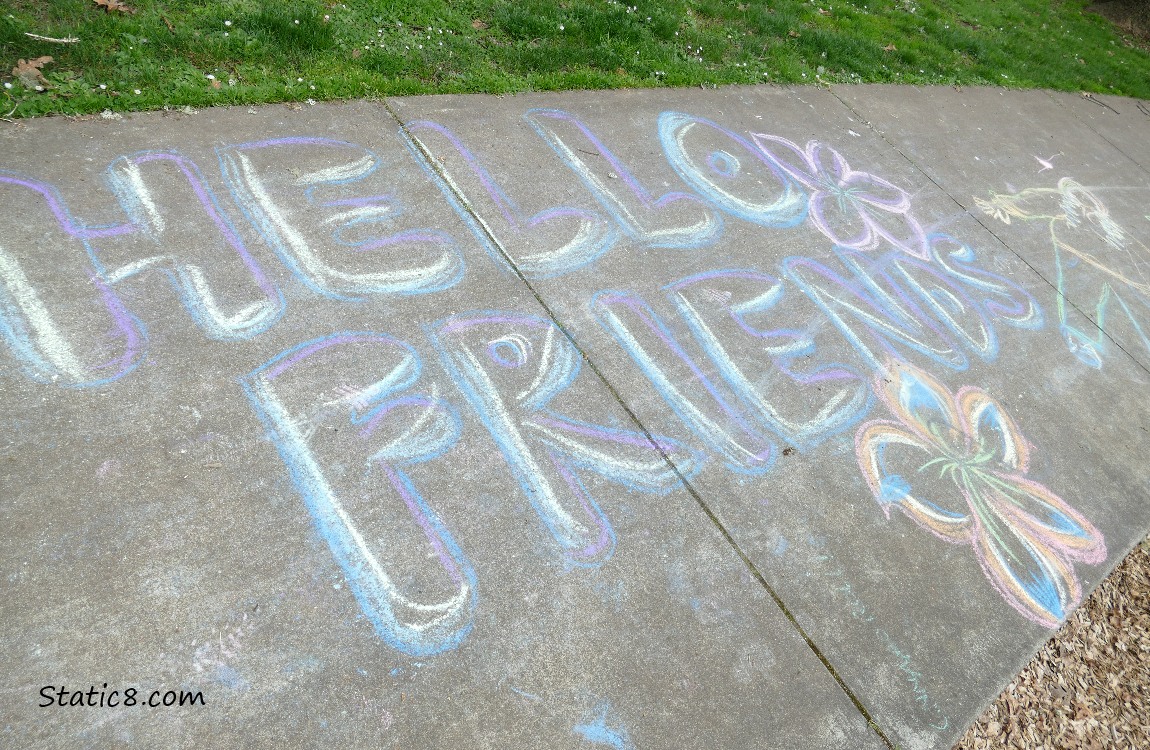 HELLO
FRIENDS
Static8.com